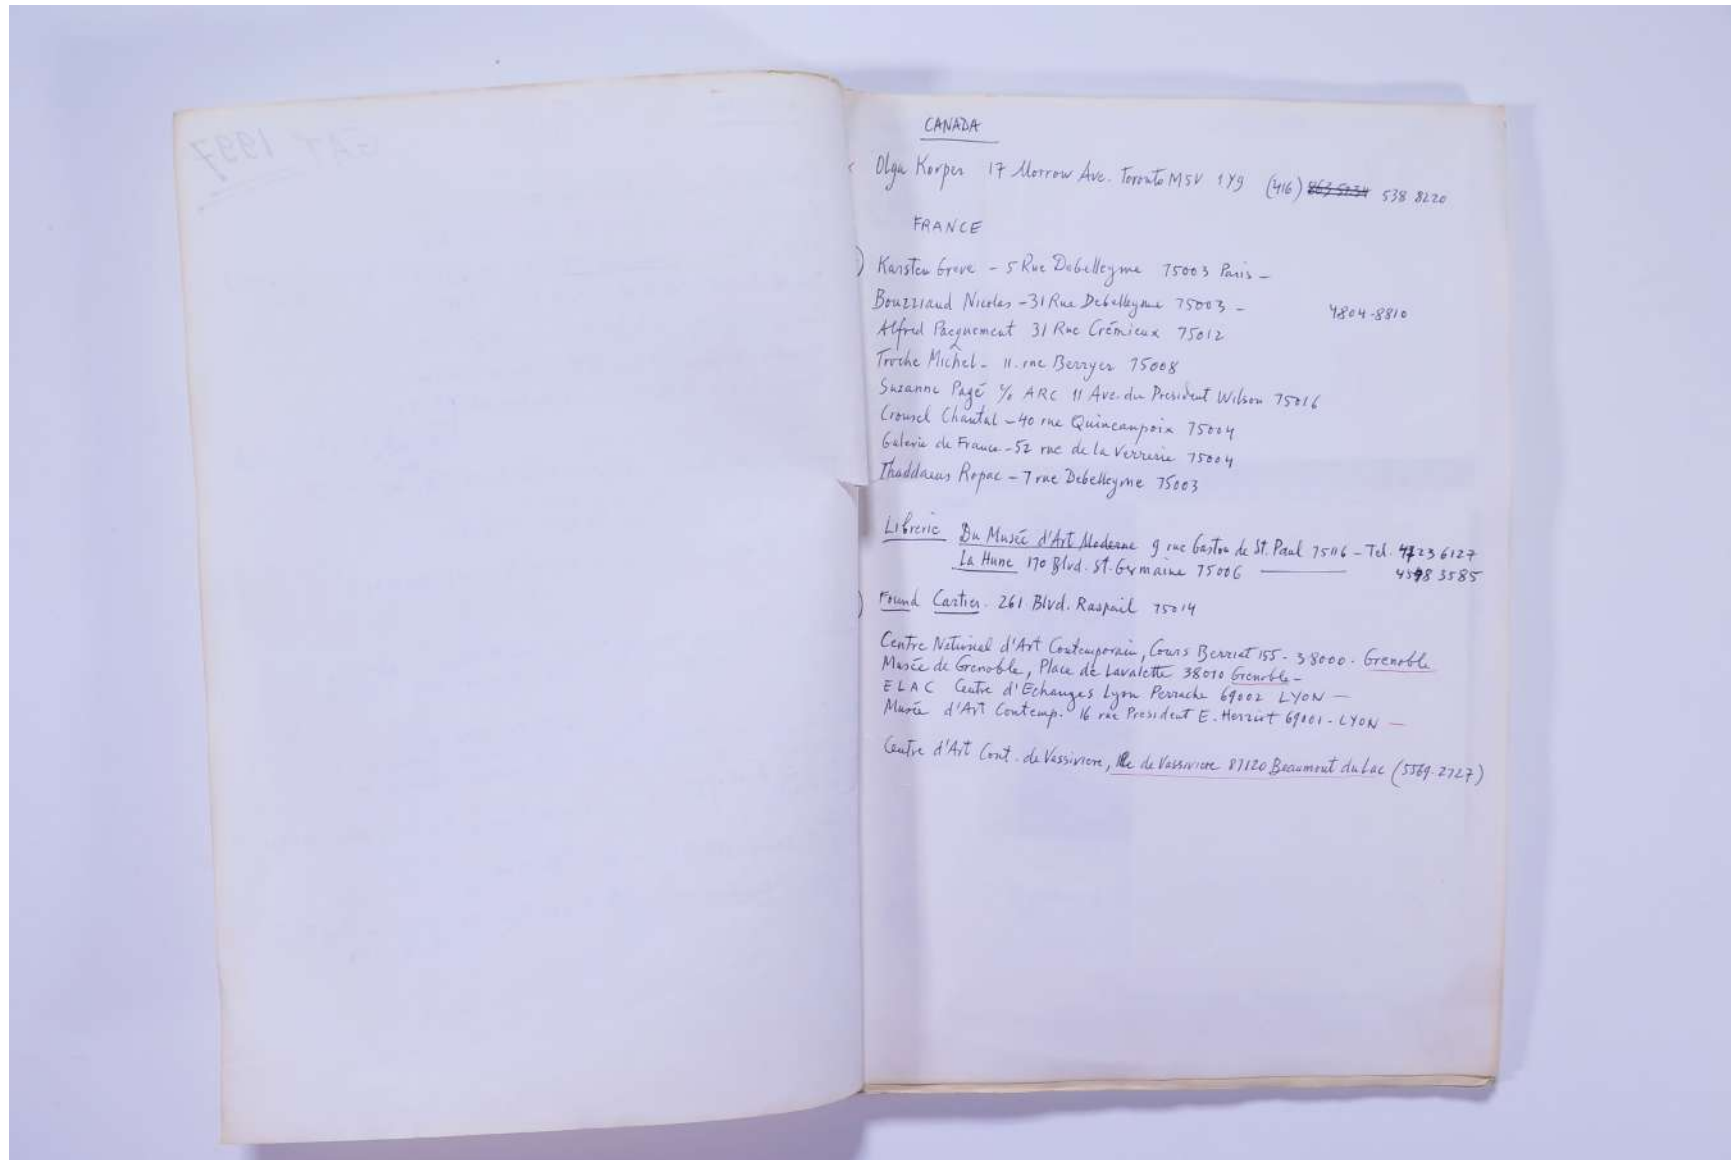 CANADA
Olga Korper 17 Morrow Ave. Toronto M5V 1Y9 (416) 538 8220
FRANCE
Karsten Greve - 5 Rue Debelleyme 75003 Paris -
Bourriaud Nicolas - 31 Rue Debelleyme 75003 - 4804-8810
Alfred Pacquement 31 Rue Crémieux 75012
Troche Michel - 11. rue Berryer 75008
Suzanne Pagé c/o ARC 11 Ave. du President Wilson 75016
Crousel Chantal - 40 rue Quincampoix 75004
Galerie de France - 52 rue de la Verrerie 75004
Thaddaeus Ropac - 7 rue Debelleyme 75003
Librerie Du Musée d'Art Moderne 9 rue Gaston de St. Paul 75116 - Tel. 4723 6127
La Hune 170 Blvd. St. Germaine 75006 3585
Found Cartier. 261 Blvd. Raspail 75014
Centre National d'Art Contemporain, Cours Berriat 155 - 38000 - Grenoble
Musée de Grenoble, Place de Lavalette 38010 Grenoble -
ELAC Centre d'Echanges Lyon Perrache 69002 LYON -
Musée d'Art Contemp. 16 rue President E. Herriot 69001 - LYON -
Centre d'Art Cont. de Vassiviere, Ile de Vassiviere 87120 Beaumont du Lac (5569.2727)